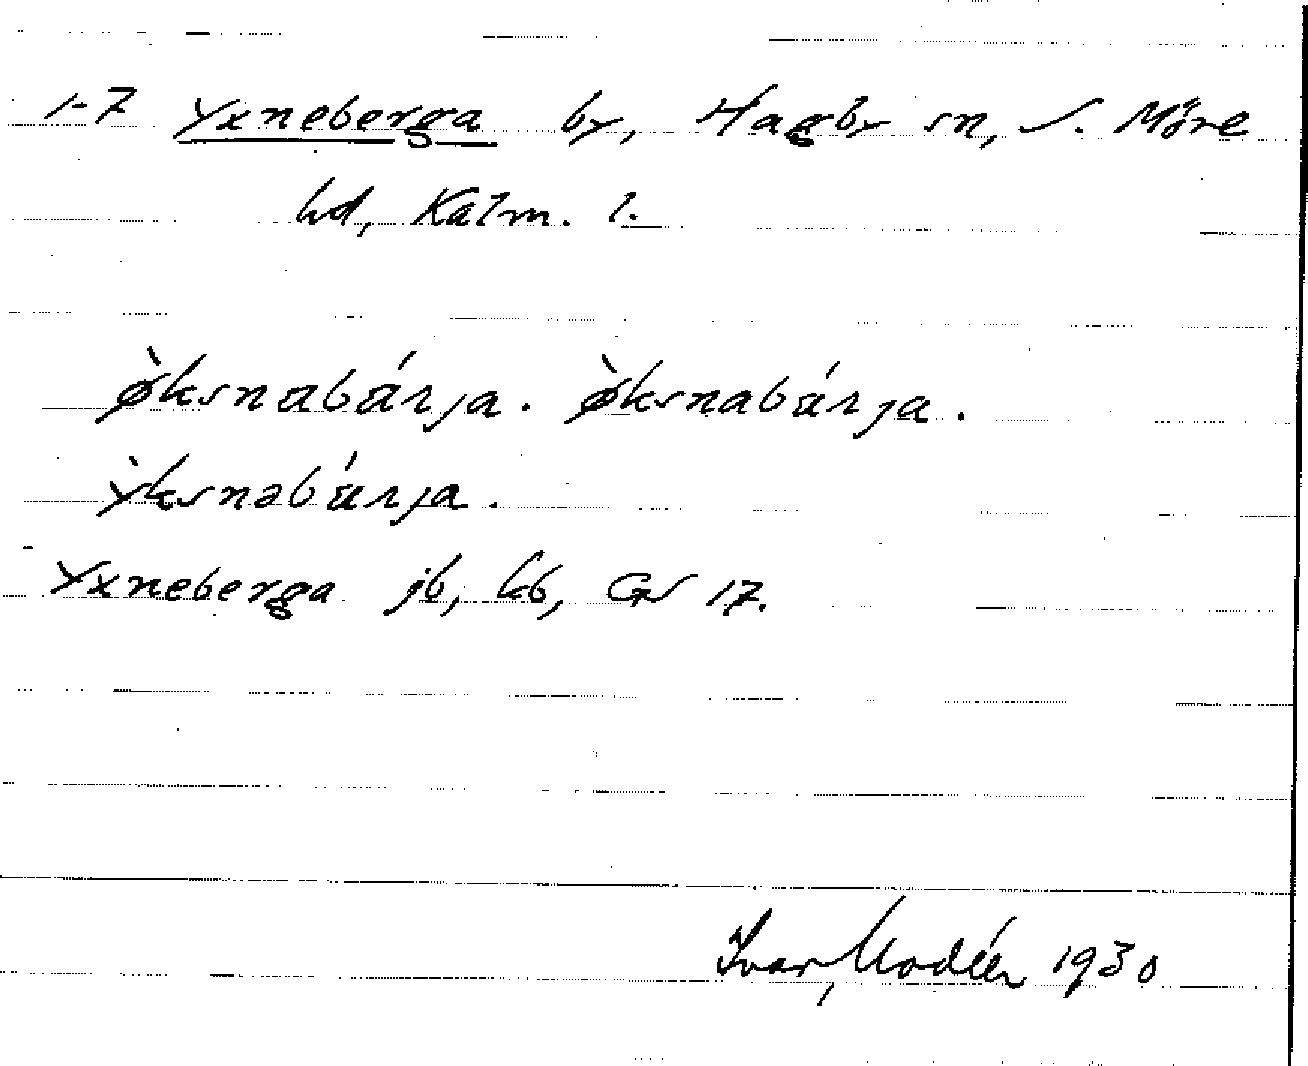 1-7 Yxneberga by, Hagby sn, S. Möre
hd, Kalm. l.
ø̀ksnabárja. ø̀ksnabárja.
ỳksnəbárja.
Yxneberga jb, kb, GS 17.
Ivar Modéer 1930